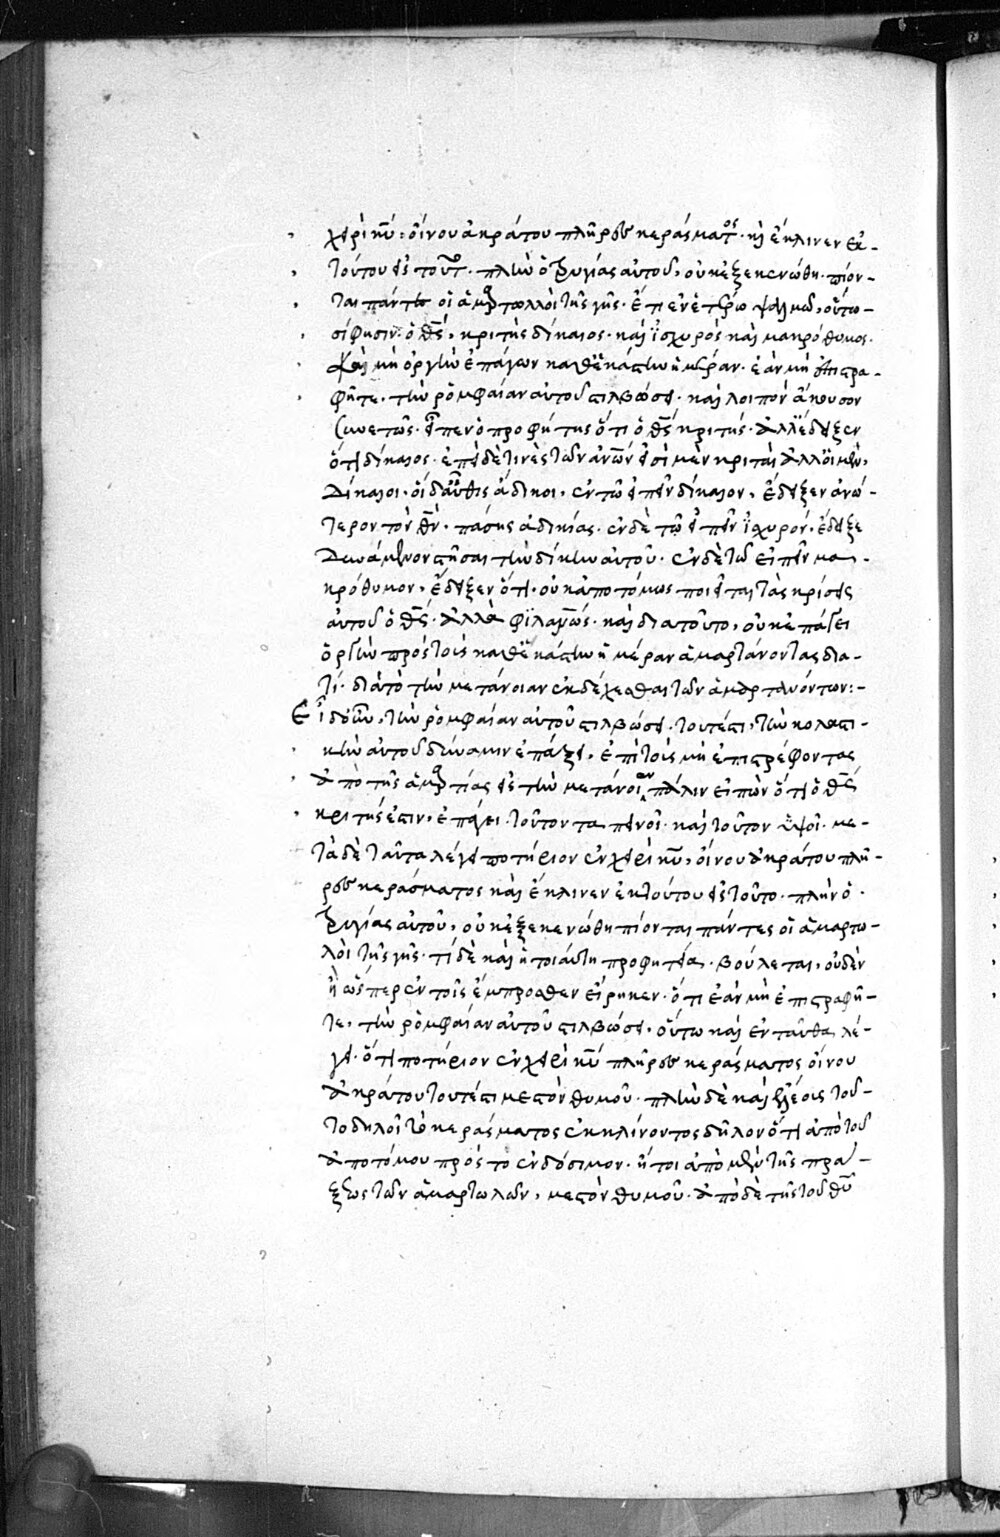 χειρὶ κυ: οἴνου ἀκράτου πλῆρες κεράσματος· καὶ ἔκλινεν ἐκ-
τούτου εἰς τοῦτο· πλὴν ὁ τρυγίας αὐτοῦ, οὐκ ἐξεκενώθη· πίον-
ται πάντες οἱ ἁμαρτωλλοὶ τῆς γῆς· ἔτι ἐν ἑτέρω ψαλμῶ, οὕτω-
σί φησιν· ὁ θς, κριτὴς δίκαιος· καὶ ἰσχυρὸς καὶ μακρόθυμος·
καὶ μὴ ὀργὴν ἐπάγων καθ' ἑκάστην ἡμέραν· ἐὰν μὴ ἐπιστρα-
φῆτε· τὴν ρομφαίαν αὐτοῦ στιλβώσει· καὶ λοιπὸν ἄκουσον
συνετῶς· εἶπεν ὁ προφήτης ὅτι ὁ θς κριτής· ἀλλ' ἔδειξεν
ὅτι δίκαιος· ἐπεὶ δὲ τινὲς τῶν ἀνων εἰσὶ μὲν κριταὶ ἀλλ' οἱ μὲν,
δίκαιοι· οἱ δ' αὖθις ἄδικοι, ἐν τῶ εἰπεῖν δίκαιον, ἔδειξεν ἀνώ-
τερον τὸν θν· πάσης ἀδικίας· ἐν δὲ τῶ εἰπεῖν ἰσχυρόν, ἔδειξε
δυνάμενον στῆσαι τὴν δίκην αὐτοῦ· ἐν δὲ τῶ εἰπεῖν μα-
κρόθυμον, ἔδειξεν ὅτι· οὐκ ἀποτόμως ποιεῖται τὰς κρίσεις
αὐτοῦ ὁ θς· ἀλλὰ φιλανως· καὶ διατοῦτο, οὐκ ἐπάγει
ὀργὴν πρὸς τοὺς καθ' ἑκάστην ἡμέραν ἁμαρτάνοντας δια-
τί· διὰ τὸ τὴν μετάνοιαν ἐκδέχεσθαι τῶν ἁμαρτανόντων:-
Εἰ δ' οὖν, τὴν ρομφαίαν αὐτοῦ στιλβώσει· τουτέστι, τὴν κολαστι-
κὴν αὐτοῦ δύναμιν ἐπάξει, ἐπὶ τοὺς μὴ ἐπιστρέφοντας
ἀπὸ τῆς ἁμαρτίας εἰς τὴν μετάνοιαν πάλιν εἰπὼν ὅτι ὁ θς
κριτής ἐστιν, ἐπάγει· τοῦτον ταπεινοῖ· καὶ τοῦτον ὑψοῖ· με-
τὰ δὲ ταῦτα λέγει ποτήριον ἐν χειρὶ κυ, οἴνου ἀκράτου πλῆ-
ρες κεράσματος καὶ ἔκλινεν ἐκ τούτου εἰς τοῦτο· πλὴν ὁ
τρυγίας αὐτοῦ, οὐκ ἐξεκενώθη πίονται πάντες οἱ ἁμαρτω-
λοὶ τῆς γῆς· τί δὲ καὶ ἡ τοιαύτη προφητεία· βούλεται, οὐδὲν
ἢ ὥσπερ ἐν τοῖς ἔμπροσθεν εἴρηκεν· ὅτι ἐὰν μὴ ἐπιστραφῆ-
τε, τὴν ρομφαίαν αὐτοῦ στιλβώσει· οὕτω καὶ ἐνταῦθα λέ-
γει· ὅτι ποτήριον ἐν χειρὶ κυ πλῆρες κεράσματος οἴνου
ἀκράτου τουτέστι μεστὸν θυμοῦ· πλὴν δὲ καὶ ἐλέους τοῦ-
το δηλοῖ τὸ κεράσματος ἐκκλίνοντος δῆλον ὅτι ἀπὸ τοῦ
ἀποτόμου πρὸς τὸ ἐνδόσιμον· ἤτοι ἀπὸ μὲν τῆς πρά-
ξεως τῶν ἁμαρτωλῶν, μεστὸν θυμοῦ· ἀπὸ δὲ τῆς τοῦ θυ